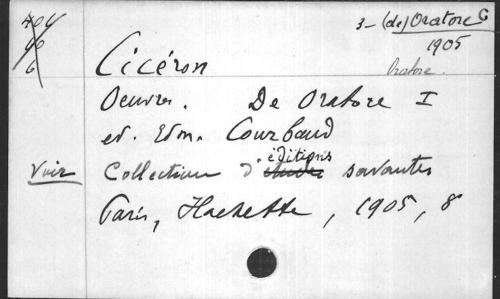 404
90
6
3- (de) Oratore G
1905
Oratore.
Cicéron
Oeuvres. De Oratore I
ed. Edm. Courbaud
Voir Collection d'éditions savantes
Paris, Hachette, 1905, 8°